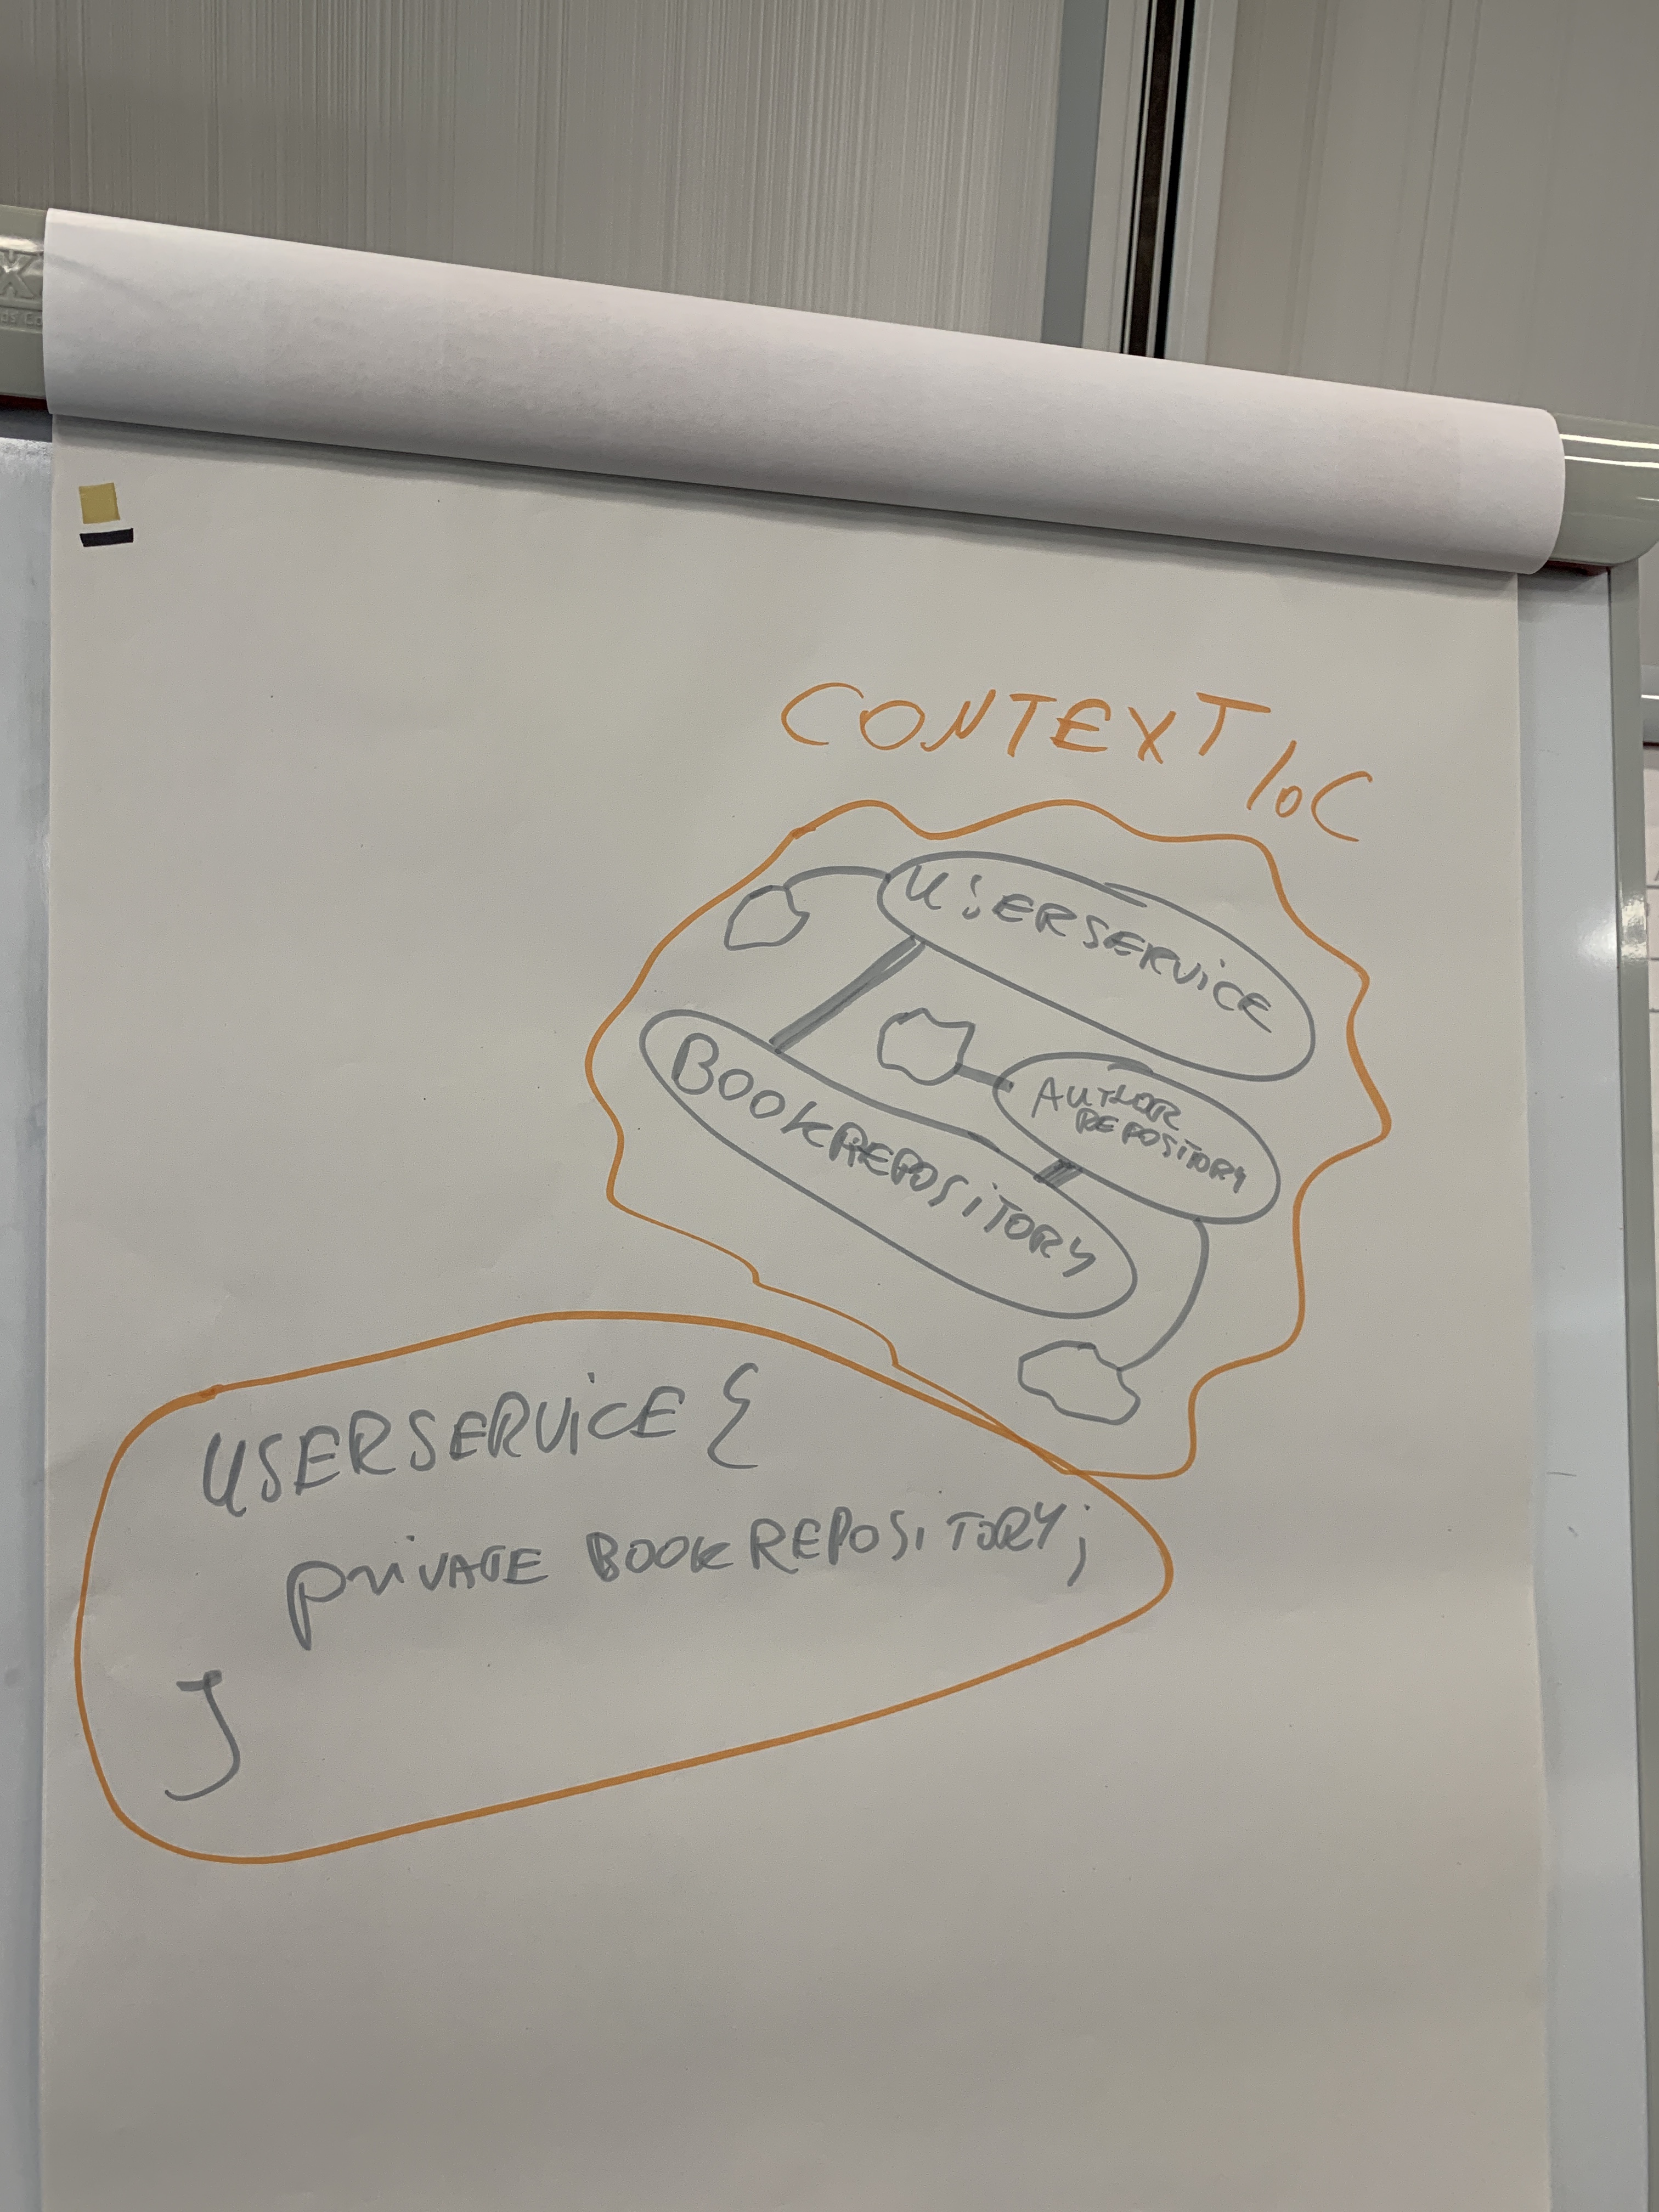 CONTEXT IoC
USERSERVICE
AUTHOR
REPOSITORY
BOOKREPOSITORY
USERSERVICE {
privATE BOOKREPOSITORY;
}